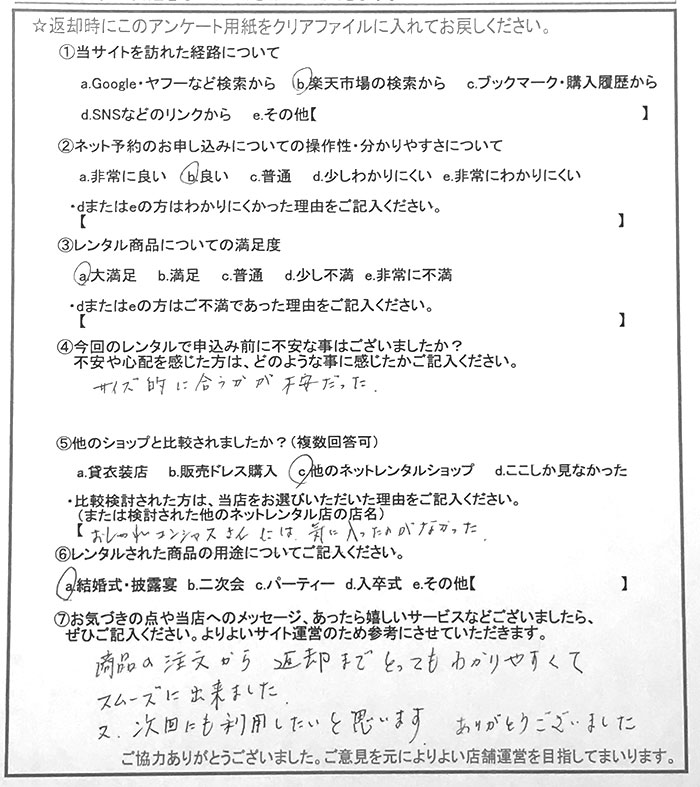 ☆返却時にこのアンケート用紙をクリアファイルに入れてお戻しください。
①当サイトを訪れた経路について
a.Google・ヤフーなど検索から b.楽天市場の検索から c.ブックマーク・購入履歴から
d.SNSなどのリンクから e.その他【 】
②ネット予約のお申し込みについての操作性・分かりやすさについて
a.非常に良い b.良い c.普通 d.少しわかりにくい e.非常にわかりにくい
・dまたはeの方はわかりにくかった理由をご記入ください。
【 】
③レンタル商品についての満足度
a.大満足 b.満足 c.普通 d.少し不満 e.非常に不満
・dまたはeの方はご不満であった理由をご記入ください。
【 】
④今回のレンタルで申込み前に不安な事はございましたか？
不安や心配を感じた方は、どのような事に感じたかご記入ください。
サイズ的に合うかが不安だった.
⑤他のショップと比較されましたか？(複数回答可)
a.貸衣装店 b.販売ドレス購入 c.他のネットレンタルショップ d.ここしか見なかった
・比較検討された方は、当店をお選びいただいた理由をご記入ください。
(または検討された他のネットレンタル店の店名)
【おしゃれコンシャスさんには、気に入ったのがなかった.
⑥レンタルされた商品の用途についてご記入ください。
a.結婚式・披露宴 b.二次会 c.パーティー d.入卒式 e.その他【 】
⑦お気づきの点や当店へのメッセージ、あったら嬉しいサービスなどございましたら、
ぜひご記入ください。よりよいサイト運営のため参考にさせていただきます。
商品の注文から 返却までとってもわかりやすくて
スムーズに出来ました.
又、次回にも利用したいと思います. ありがとうございました
ご協力ありがとうございました。ご意見を元によりよい店舗運営を目指してまいります。